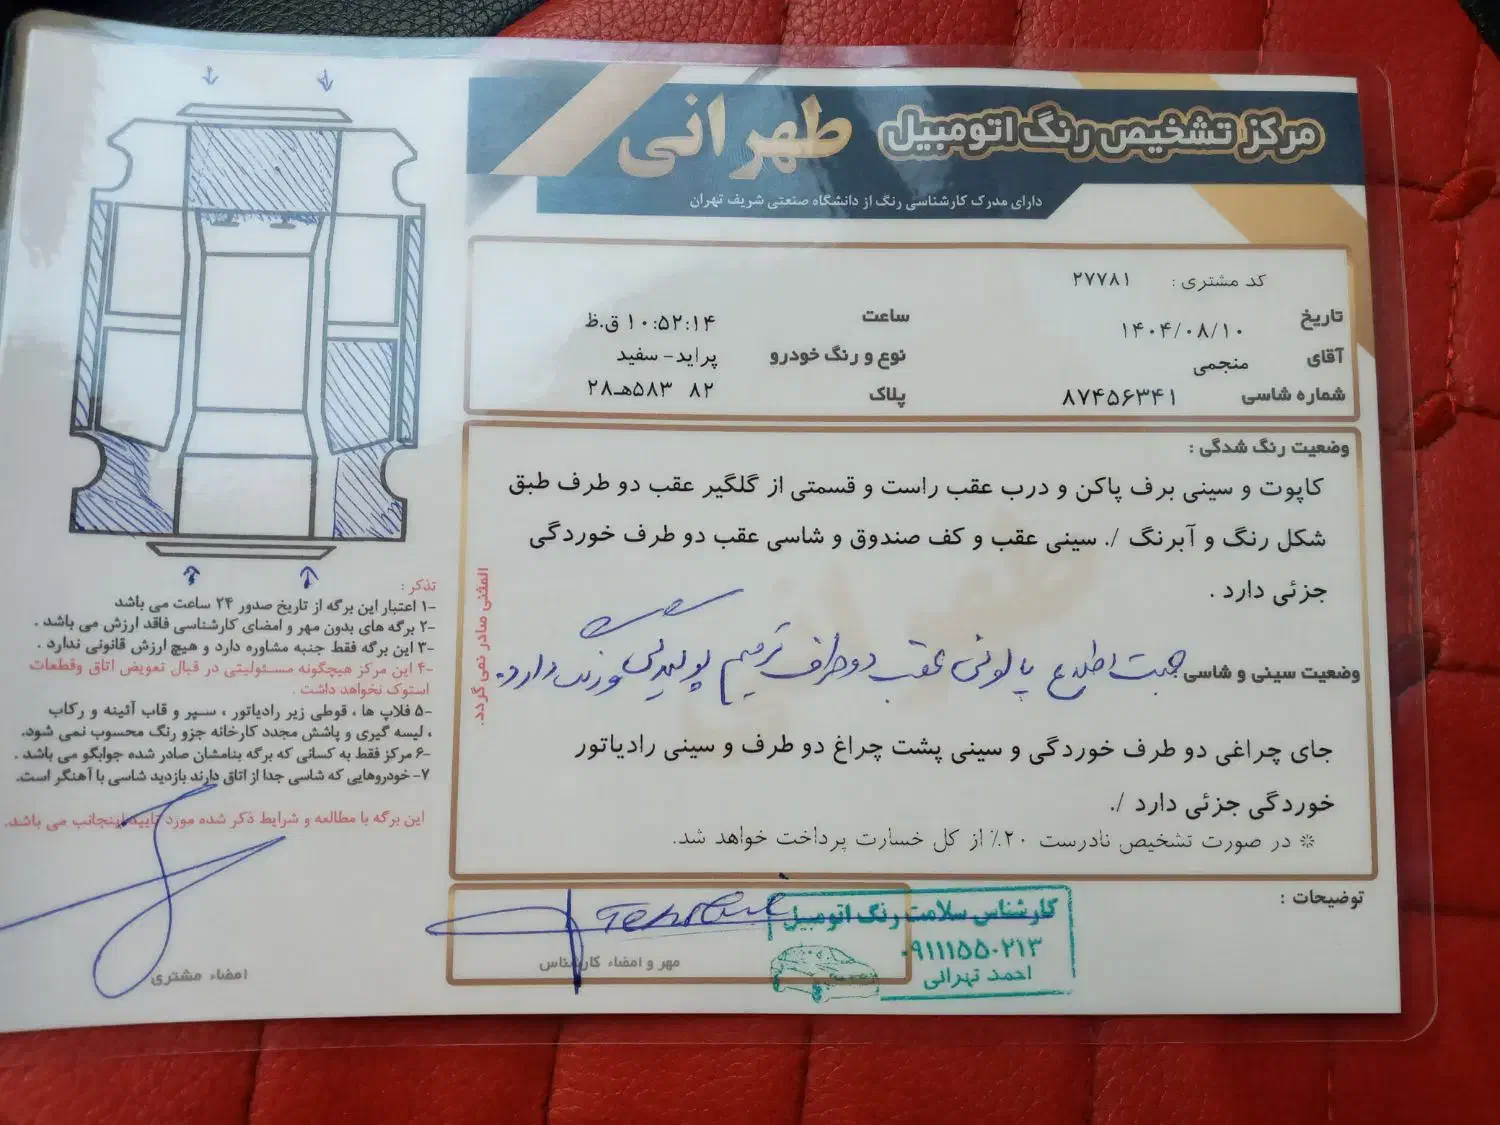 مرکز تشخیص رنگ اتومبیل طهرانی
دارای مدرک کارشناسی رنگ از دانشگاه صنعتی شریف تهران
کد مشتری : ۲۷۷۸۱
تاریخ ۱۴۰۴/۰۸/۱۰ ساعت ۱۰:۵۲:۱۴ ق.ظ
آقای منجمی نوع و رنگ خودرو پراید- سفید
شماره شاسی ۸۷۴۵۶۳۴۱ پلاک ۸۲ ۵۸۳هـ۲۸
وضعیت رنگ شدگی :
کاپوت و سینی برف پاکن و درب عقب راست و قسمتی از گلگیر عقب دو طرف طبق
شکل رنگ و آبرنگ /. سینی عقب و کف صندوق و شاسی عقب دو طرف خوردگی
جزئی دارد .
وضعیت سینی و شاسی جهت اطلاع پالونی عقب دو طرف ترمیم پولیدگی و رنگ دارد.
جای چراغی دو طرف خوردگی و سینی پشت چراغ دو طرف و سینی رادیاتور
خوردگی جزئی دارد /.
※ در صورت تشخیص نادرست ۲۰٪ از کل خسارت پرداخت خواهد شد.
المثنی صادر نمی گردد.
توضیحات :
مهر و امضاء کارشناس
کارشناس سلامت رنگ اتومبیل
۰۹۱۱۱۵۵۰۲۱۳
احمد تهرانی
تذکر :
۱- اعتبار این برگه از تاریخ صدور ۲۴ ساعت می باشد
۲- برگه های بدون مهر و امضای کارشناسی فاقد ارزش می باشد .
۳- این برگه فقط جنبه مشاوره دارد و هیچ ارزش قانونی ندارد .
۴- این مرکز هیچگونه مسئولیتی در قبال تعویض اتاق وقطعات
استوک نخواهد داشت .
۵- فلاپ ها ، قوطی زیر رادیاتور ، سپر و قاب آئینه و رکاب
، لیسه گیری و پاشش مجدد کارخانه جزو رنگ محسوب نمی شود.
۶- مرکز فقط به کسانی که برگه بنامشان صادر شده جوابگو می باشد .
۷- خودروهایی که شاسی جدا از اتاق دارند بازدید شاسی با آهنگر است.
این برگه با مطالعه و شرایط ذکر شده مورد تایید اینجانب می باشد.
امضاء مشتری